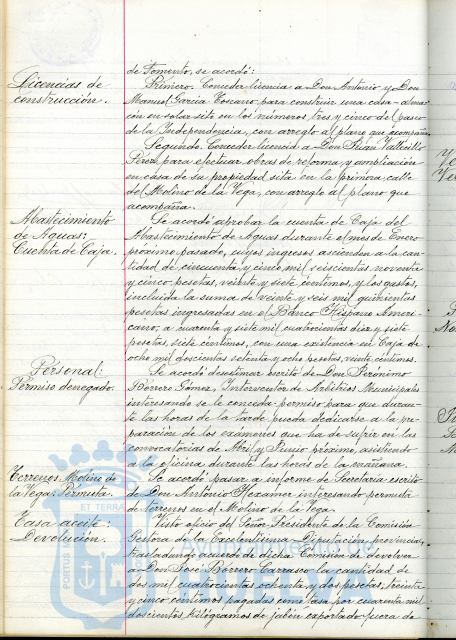 de Fomento, se acordó:
Licencias de construcción.
Primero. Conceder licencia a Don Antonio y Don
Manuel García Toscano para construir una casa-alma-
cén en solar sito en los números, tres y cinco del paseo
de la Independencia, con arreglo al plano que acompañan
Segundo. Conceder licencia a Don Juan Vallecillo
Pérez para efectuar obras de reforma y ampliación
en casa de su propiedad sita en la primera calle
del Molino de la Vega, con arreglo al plano que
acompaña.
Abastecimiento de Aguas: Cuenta de Caja.
Se acordó aprobar la cuenta de Caja del
Abastecimiento de Aguas durante el mes de Enero
próximo pasado, cuyos ingresos ascienden a la can-
tidad de cincuenta y cinco mil seiscientas noventa
y cinco pesetas, veinte y siete céntimos, y los gastos,
incluida la suma de veinte y seis mil quinientas
pesetas ingresadas en el Banco Hispano Ameri-
cano, a cuarenta y siete mil cuatrocientas diez y siete
pesetas siete céntimos, con una existencia en Caja de
ocho mil doscientas setenta y ocho pesetas, veinte céntimos.
Personal: Permiso denegado.
Se acordó desestimar escrito de Don Jerónimo
Borrero Gómez, Interventor de Arbitrios Municipales
interesando se le conceda permiso para que duran-
te las horas de la tarde pueda dedicarse a la pre-
paración de los exámenes que ha de sufrir en las
convocatorias de Abril y Junio próximo, asistiendo
a la oficina durante las horas de la mañana.
Terrenos Molino de la Vega: Permuta.
Se acordó pasar a informe de Secretaria escrito
de Don Antonio Hexamer interesando permuta
de terrenos en el Molino de la Vega.
Tasa aceite: Devolución.
Visto oficio del Señor Presidente de la Comisión
Gestora de la Excelentísima Diputación provincial,
trasladando acuerdo de dicha Comisión de devolver
a Don José Borrero Carrasco la cantidad de
dos mil cuatrocientas ochenta y dos pesetas, treinta
y cinco céntimos pagadas como tasa por cuarenta mil
doscientos kilógramos de jabón exportado fuera de
PORTUS
ET TERRA